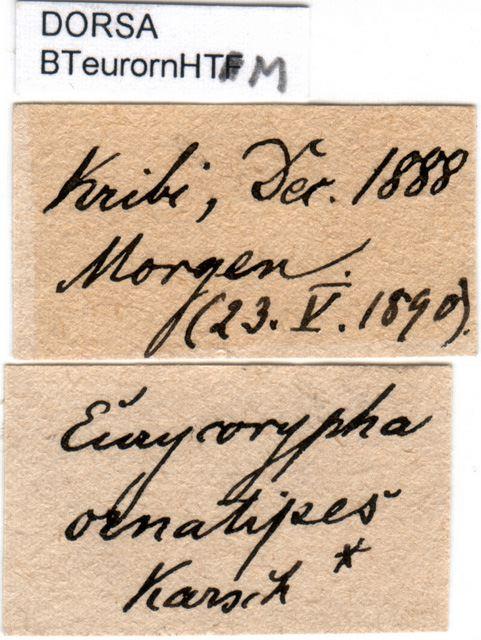 DORSA
BTeurornHTFM
Kribi, Dec. 1888
Morgen.
(23. V. 1890).
Eurycorypha
ornatipes
Karsch *